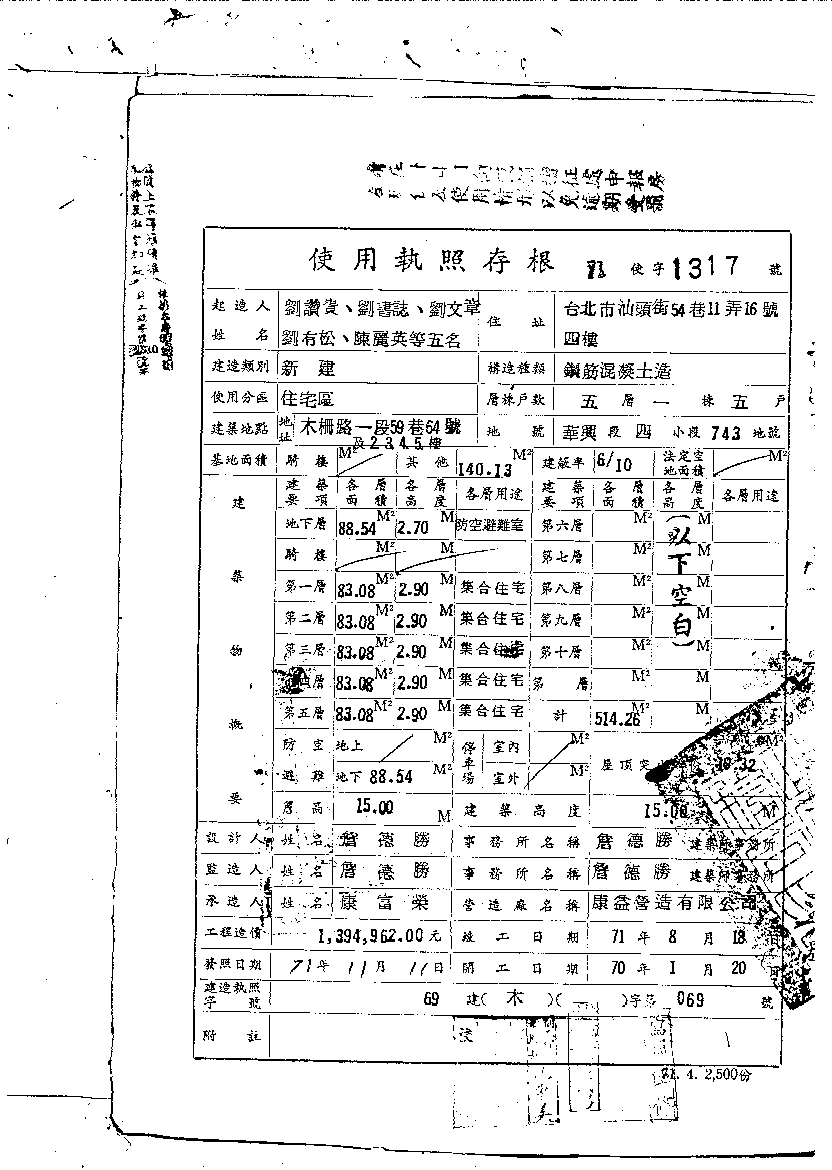 使用執照存根 71 使字 1317 號
起造人姓名 劉讚貴、劉書誌、劉文章 劉有松、陳麗英等五名 住址 台北市汕頭街54巷11弄16號四樓
建造類別 新建 構造種類 鋼筋混凝土造
使用分區 住宅區 層棟戶數 五層一棟五戶
建築地點 地址 木柵路一段59巷64號及2.3.4.5.樓 地號 華興段四小段743地號
基地面積 騎樓 M² 其他 140.13 M² 建蔽率 6/10 法定空地面積 M²
建築物概要
建築要項 各層面積 各層高度 各層用途 建築要項 各層面積 各層高度 各層用途
地下層 88.54 M² 2.70 M 防空避難室 第六層 M² M
騎樓 M² M 第七層 M² M
第一層 83.08 M² 2.90 集合住宅 第八層 M² M
第二層 83.08 M² 2.90 集合住宅 第九層 M² M
第三層 83.08 M² 2.90 集合住宅 第十層 M² M
層 83.08 M² 2.90 集合住宅 第 層 M² M
第五層 83.08 M² 2.90 集合住宅 計 514.26 M² M
(以下空白)
防空避難 地上 M² 停車場 室內 M² 屋頂突 M²
地下 88.54 M² 室外 M²
簷高 15.00 M 建築高度 15.00 M
設計人 姓名 詹德勝 事務所名稱 詹德勝 建築師事務所
監造人 姓名 詹德勝 事務所名稱 詹德勝 建築師事務所
承造人 姓名 康富榮 營造廠名稱 康益營造有限公司
工程造價 1,394,962.00元 竣工日期 71年8月18
發照日期 71年11月11日 開工日期 70年1月20
建造執照字號 69 建(木)( )字第 069 號
附註
71. 4. 2,500份